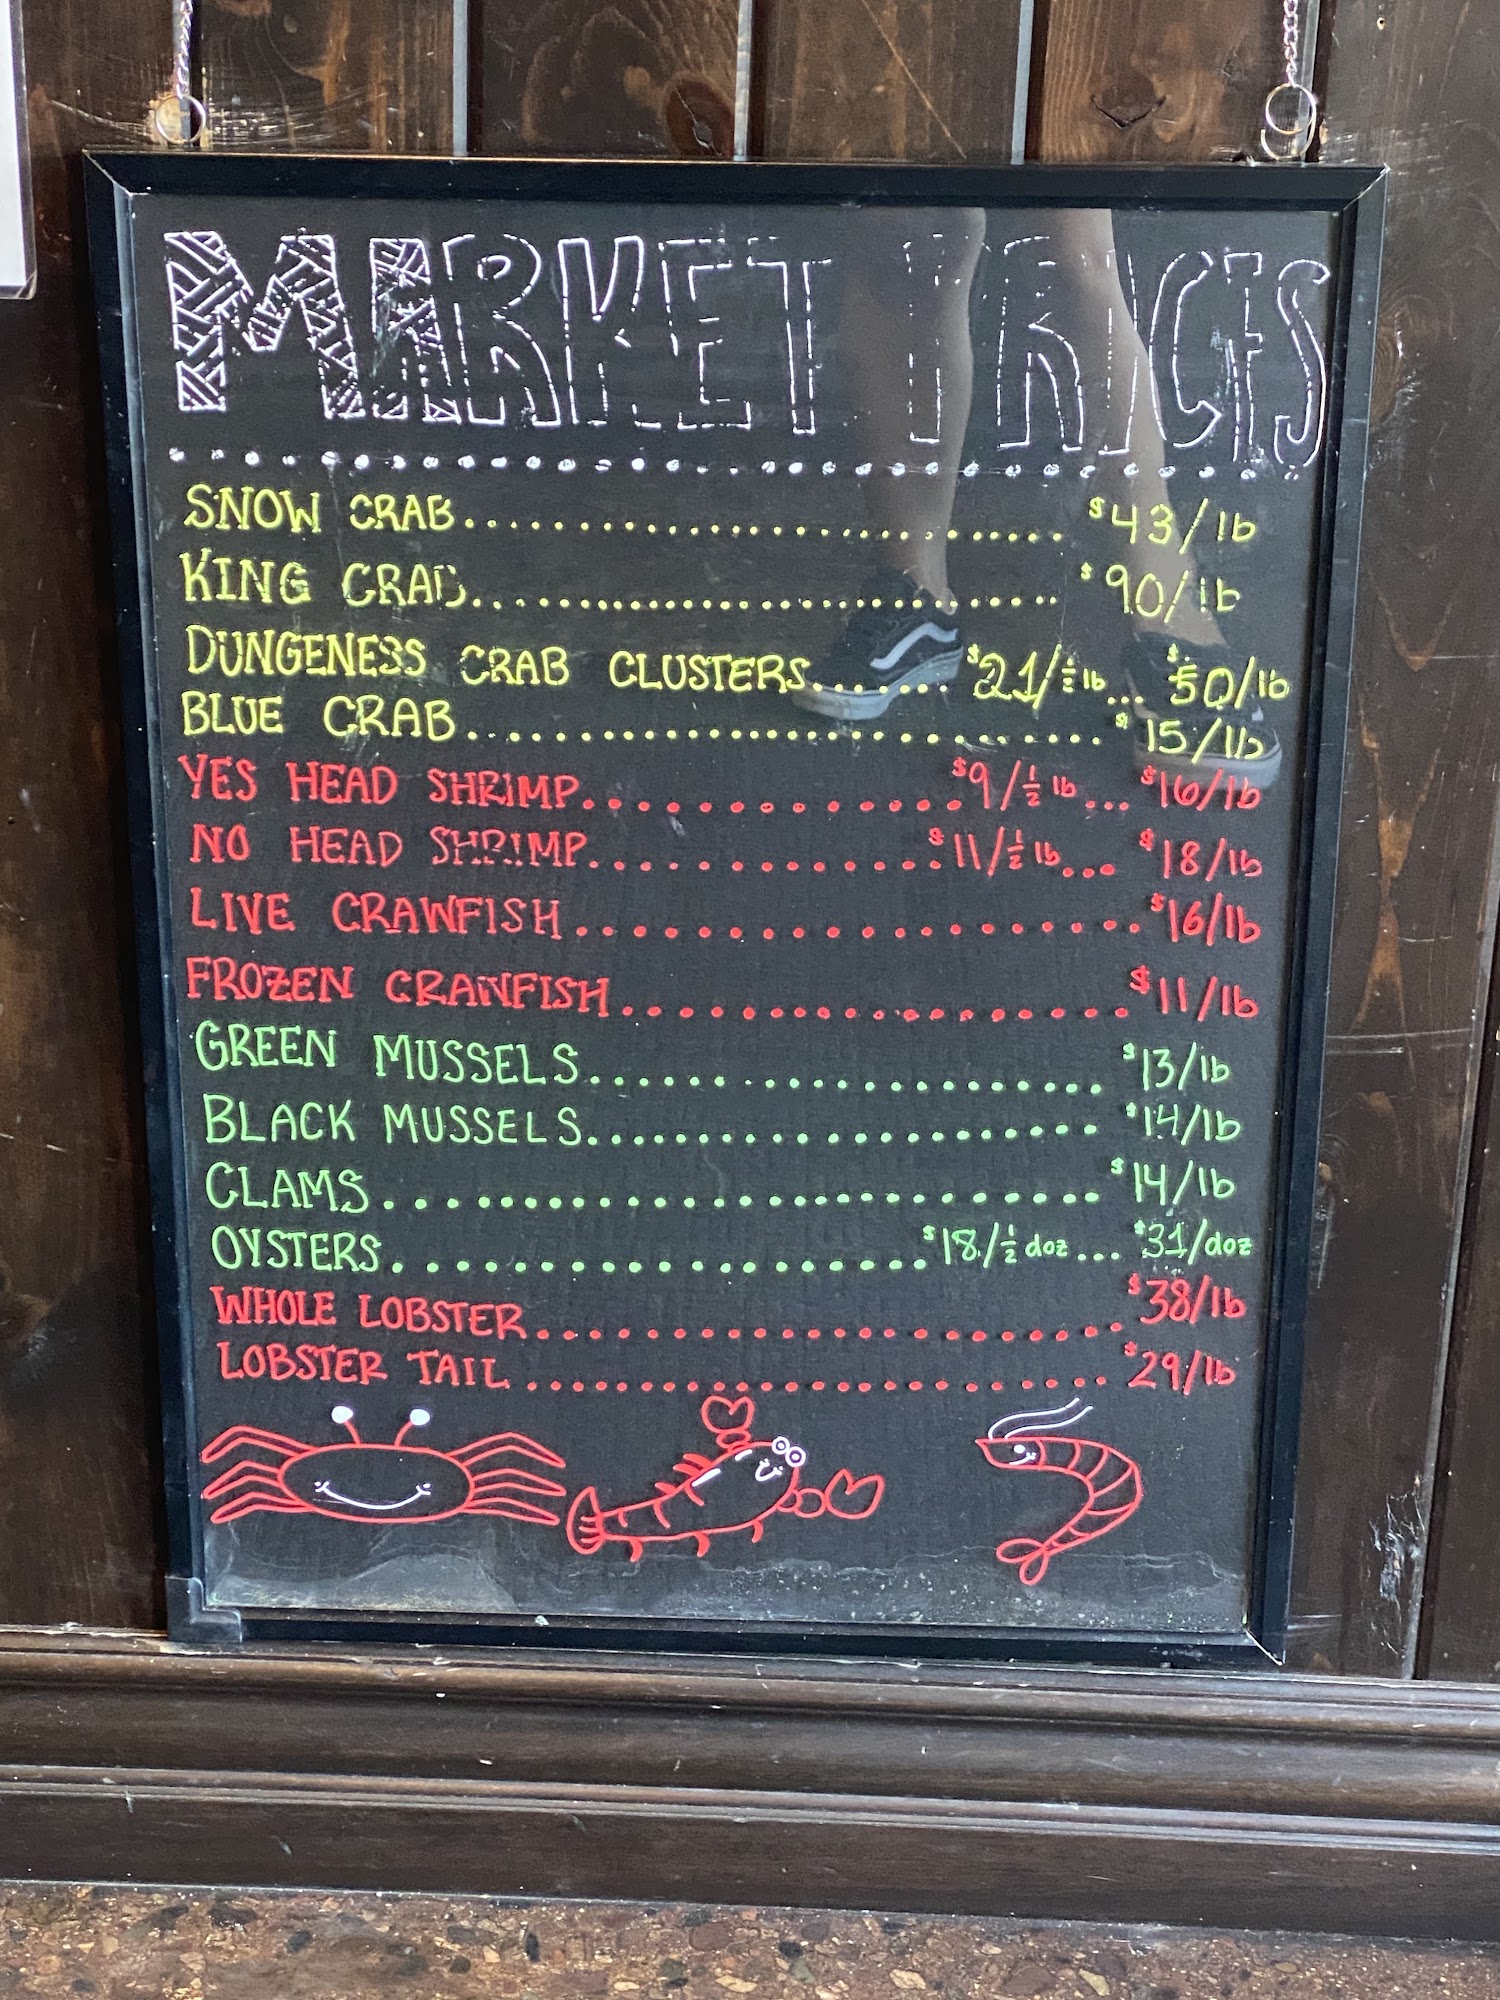 MARKET PRICES
SNOW CRAB........................ $43/lb
KING CRAB........................ $90/lb
DUNGENESS CRAB CLUSTERS....... $21/½ lb... $50/lb
BLUE CRAB........................ $15/lb
YES HEAD SHRIMP............. $9/½ lb... $16/lb
NO HEAD SHRIMP............. $11/½ lb... $18/lb
LIVE CRAWFISH................... $16/lb
FROZEN CRAWFISH................. $11/lb
GREEN MUSSELS.................... $13/lb
BLACK MUSSELS.................... $14/lb
CLAMS........................ $14/lb
OYSTERS.................... $18/½ doz... $31/doz
WHOLE LOBSTER.................... $38/lb
LOBSTER TAIL.................... $29/lb